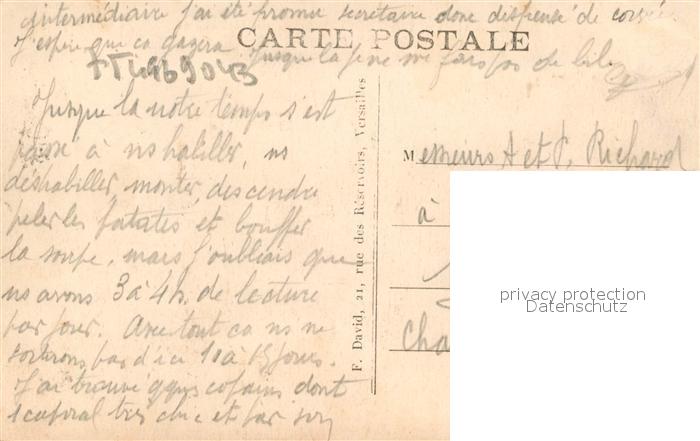 intermédiaire j'ai été promu secrétaire donc dispensé de corvées
J'espère que ca gazera jusque la je ne me fais pas de bile
CARTE POSTALE
Jusque la notre temps s'est
passé à ns habiller, ns
déshabiller, monter, descendre
peler les patates et bouffer
la soupe, mais j'oubliais que
ns avons 3 à 4 h. de lecture
par jour. Avec tout ca ns ne
sortirons pas d'ici 10 à 15 jours.
J'ai trouvé qques copains dont
1 caporal très chic et par son
F. David, 21, rue des Réservoirs, Versailles
Messieurs A et P. Richard
à
Cha
privacy protection
www.oldthing.com